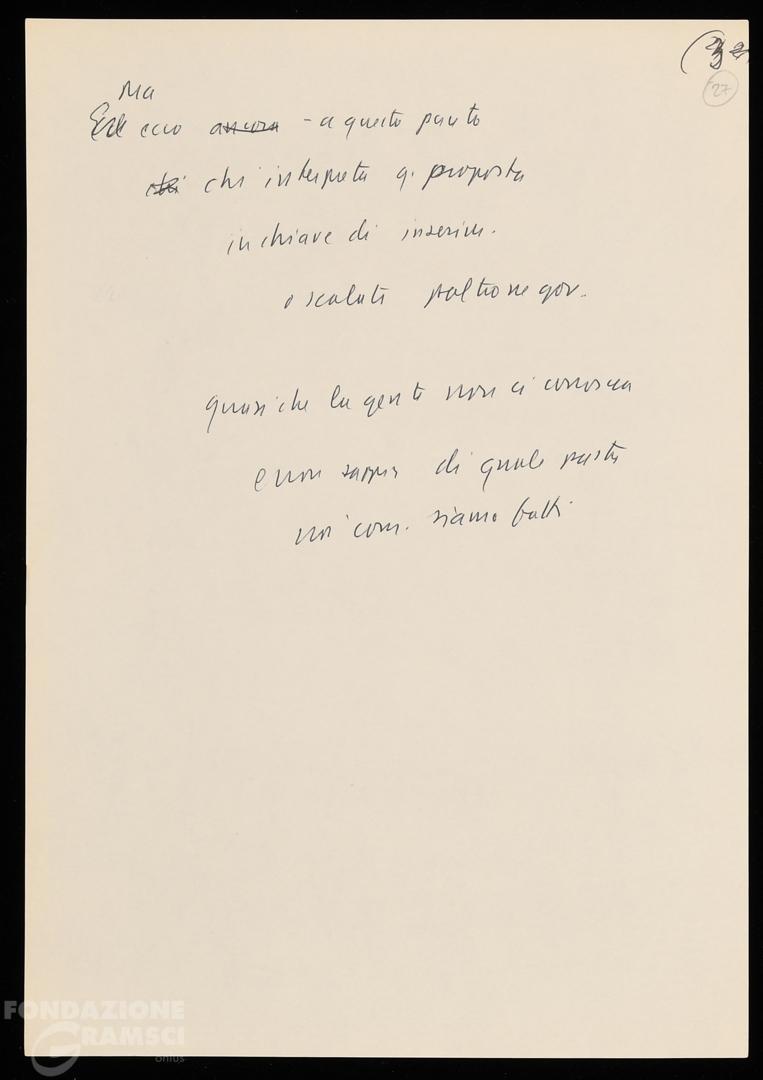 27
Ma
ecco ancora - a questo punto
chi chi interpreta q. proposta
in chiave di inserim.
o scaluti nel gov.
quasi che la gente non ci conosca
e non sappia di quale pasta
noi com. siamo fatti
FONDAZIONE
GRAMSCI
onlus